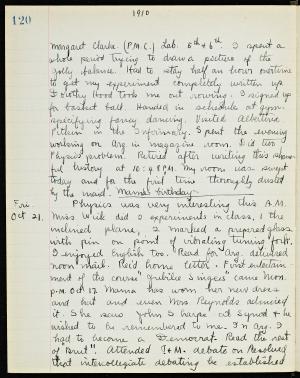 120
1910
Margaret Clarke. (P.M.C.) Lab. 5th & 6th. I spent a
whole period trying to draw a picture of the
jolly balance. Had to stay half an hour overtime
to get my experiment completely written up.
Dorothy Hood took me out rowing. I signed up
for basket ball. Handed in schedule at gym.
specifying fancy dancing. Visited Albertina
Pitkin in the Infirmary. I spent the evening
working on Arg in magazine room. Did two
Physics problem. Retired after writing this
history at 10:  P.M. My room was swept
today and for the first time thoroughly dusted
by the maid. Mama's birthday.
Fri. Physics was very interesting this A.M.
Oct 21. Miss Wick did 2 experiments in class, 1 the
inclined plane, 2 marked a prepared glass
with pin on point of vibrating tuning fork.
I enjoyed English too. Read for Arg. delivered
noon mail. Rec'd home letter. First entertain
ment of the course Jubilee Singers came Mon.
p.m. Oct 17. Mama has worn her new dress
and hat and even Mrs Reynolds admired
it. She saw John I Harpe at synod & he
wished to be remembered to me. In Arg. I
had to become a Democrat. Read the rest
of "Brut". Attended T&M. debate on Resolved
that intercollegiate debating be established